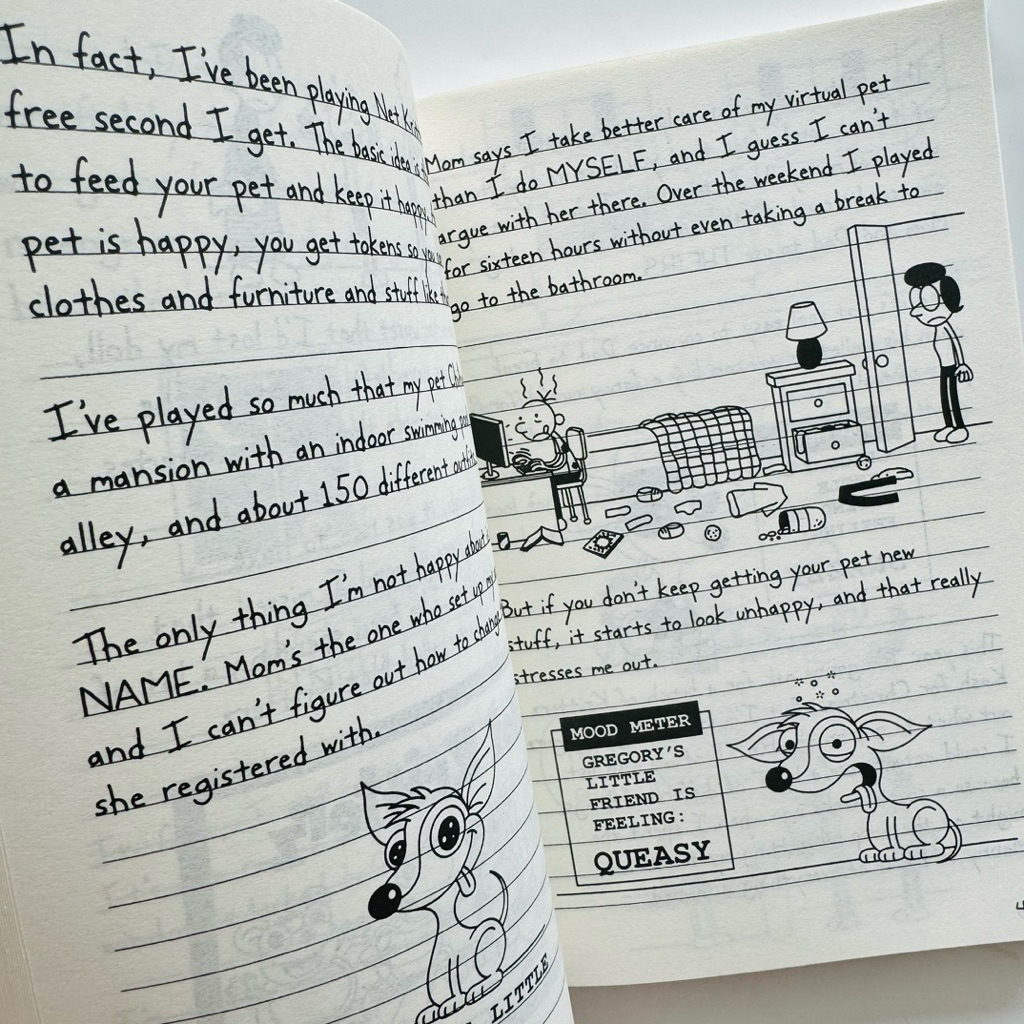 In fact, I've been playing Net
free second I get. The basic idea is
to feed your pet and keep it happy.
pet is happy, you get tokens so you
clothes and furniture and stuff like
I've played so much that my pet
a mansion with an indoor swimming
alley, and about 150 different
The only thing I'm not happy about
NAME. Mom's the one who set up
and I can't figure out how to change
she registered with.
LITTLE
Mom says I take better care of my virtual pet
than I do MYSELF, and I guess I can't
argue with her there. Over the weekend I played
for sixteen hours without even taking a break to
go to the bathroom.
But if you don't keep getting your pet new
stuff, it starts to look unhappy, and that really
stresses me out.
MOOD METER
GREGORY'S
LITTLE
FRIEND IS
FEELING:
QUEASY